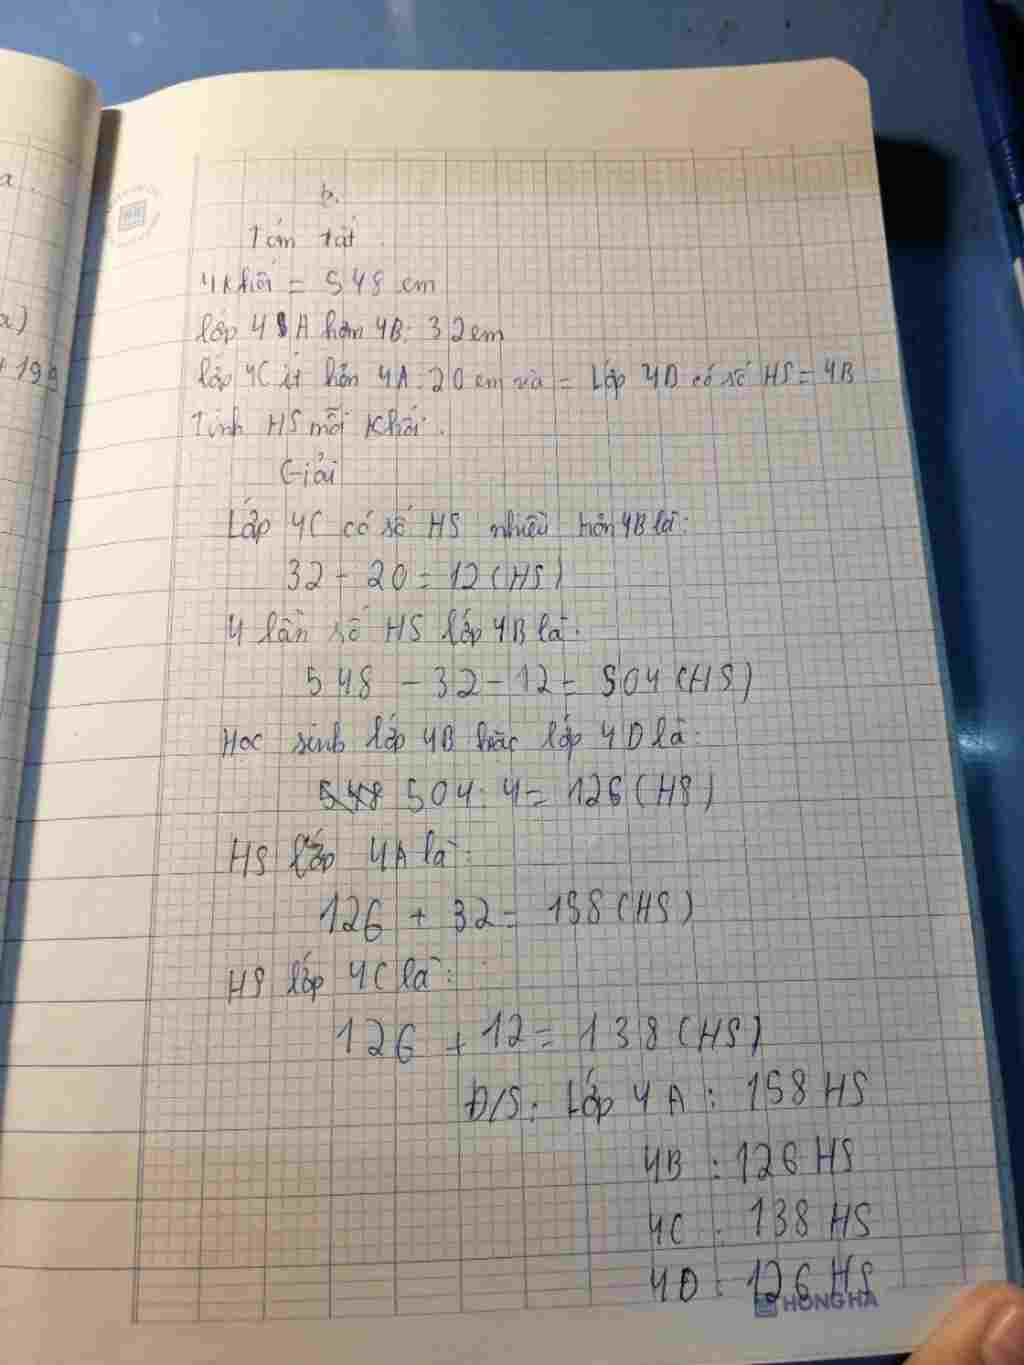 b.
Tóm tắt
4 khối = 548 em
lớp 4A hơn 4B: 32 em
lớp 4C ít hơn 4A: 20 em và = Lớp 4D có số HS = 4B
Tính HS mỗi khối.
Giải
Lớp 4C có số HS nhiều hơn 4B là:
32 - 20 = 12 (HS)
4 lần số HS lớp 4B là:
548 - 32 - 12 = 504 (HS)
Học sinh lớp 4B hoặc lớp 4D là:
548 504 : 4 = 126 (HS)
HS lớp 4A là:
126 + 32 = 158 (HS)
HS lớp 4C là:
126 + 12 = 138 (HS)
Đ/S: Lớp 4A: 158 HS
4B: 126 HS
4C: 138 HS
4D: 126 HS
HONG HA
a
a)
199